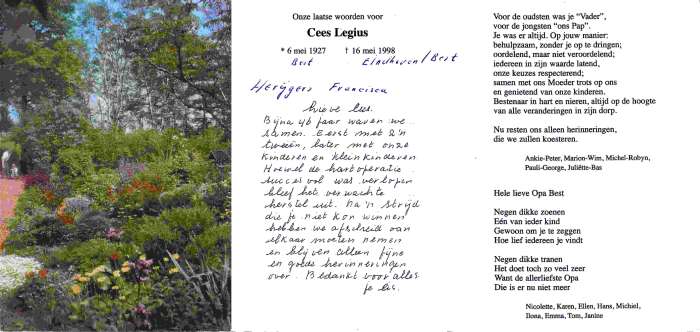 Onze laatste woorden voor
Cees Legius
* 6 mei 1927 † 16 mei 1998
Best Eindhoven/Best
Herijgers Francisca
Lieve Cees.
Bijna 46 jaar waren we
samen. Eerst met z'n
tweeën, later met onze
kinderen en kleinkinderen
Hoewel de hartoperatie
succesvol was verlopen
bleef het verwachte
herstel uit. Na 'n strijd
die je niet kon winnen
hebben we afscheid van
elkaar moeten nemen
en blijven alleen fijne
en goede herinneringen
over. Bedankt voor alles
je Cis.
Voor de oudsten was je "Vader",
voor de jongsten "ons Pap".
Je was er altijd. Op jouw manier:
behulpzaam, zonder je op te dringen;
oordelend, maar niet veroordelend;
iedereen in zijn waarde latend,
onze keuzes respecterend;
samen met ons Moeder trots op ons
en genietend van onze kinderen.
Bestenaar in hart en nieren, altijd op de hoogte
van alle veranderingen in zijn dorp.
Nu resten ons alleen herinneringen,
die we zullen koesteren.
Ankie-Peter, Marion-Wim, Michel-Robyn,
Pauli-George, Juliëtte-Bas
Hele lieve Opa Best
Negen dikke zoenen
Eén van ieder kind
Gewoon om je te zeggen
Hoe lief iedereen je vindt
Negen dikke tranen
Het doet toch zo veel zeer
Want de allerliefste Opa
Die is er nu niet meer
Nicolette, Karen, Ellen, Hans, Michiel,
Ilona, Emma, Tom, Janine